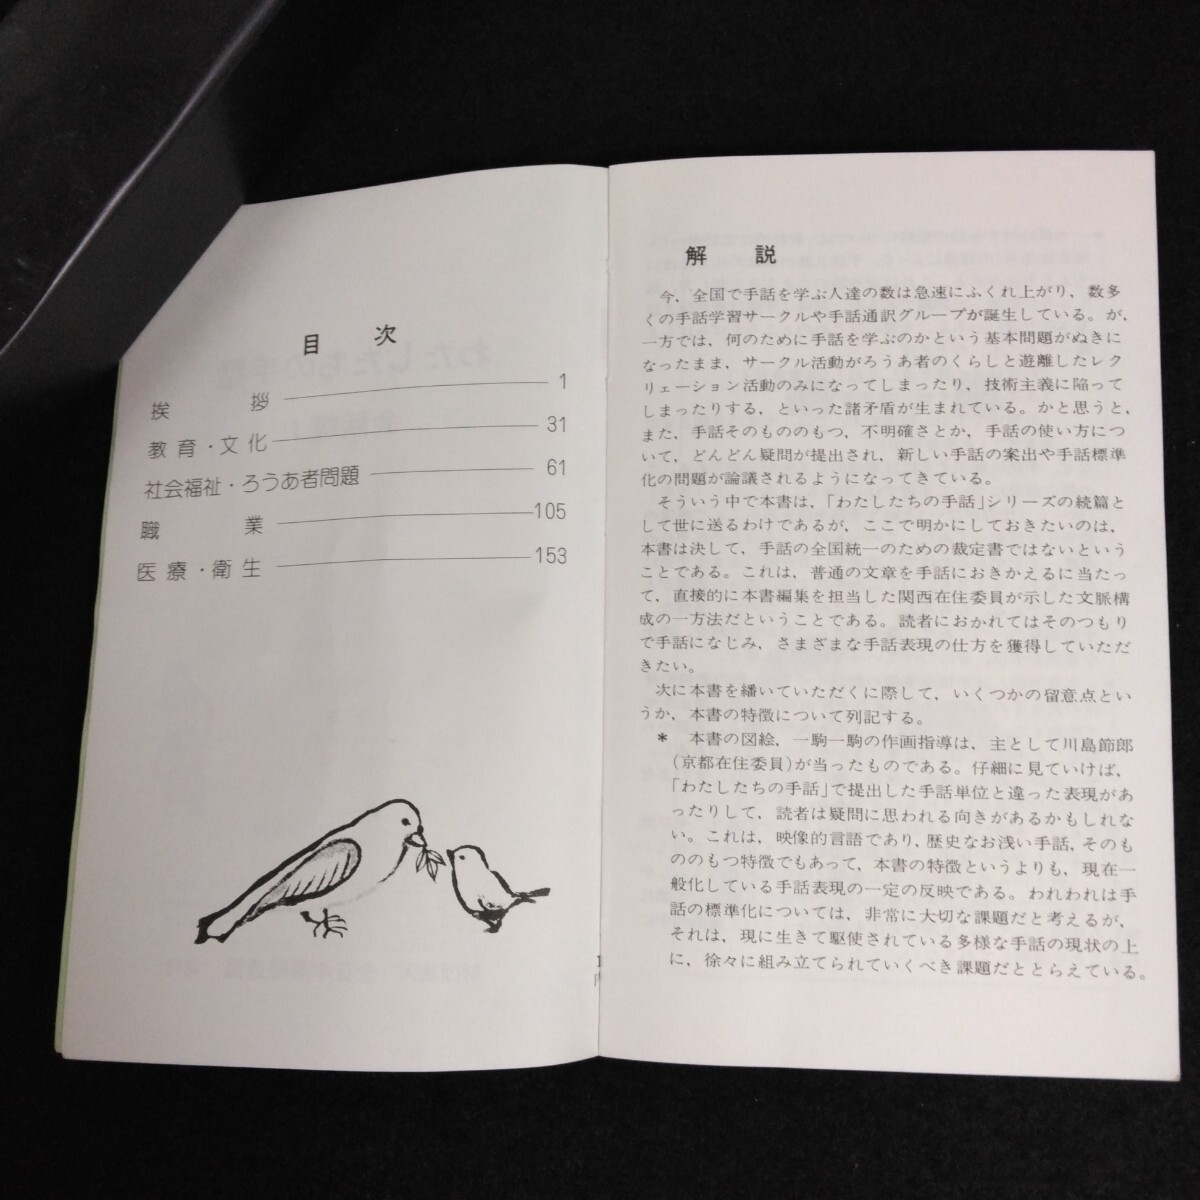 目次
挨拶 1
教育・文化 31
社会福祉・ろうあ者問題 61
職業 105
医療・衛生 153
解説
今、全国で手話を学ぶ人達の数は急速にふくれ上がり、数多
くの手話学習サークルや手話通訳グループが誕生している。が、
一方では、何のために手話を学ぶのかという基本問題がぬきに
なったまま、サークル活動がろうあ者のくらしと遊離したレク
リェーション活動のみになってしまったり、技術主義に陥って
しまったりする、といった諸矛盾が生まれている。かと思うと、
また、手話そのもののもつ、不明確さとか、手話の使い方につ
いて、どんどん疑問が提出され、新しい手話の案出や手話標準
化の問題が論議されるようになってきている。
そういう中で本書は、「わたしたちの手話」シリーズの続篇と
して世に送るわけであるが、ここで明かにしておきたいのは、
本書は決して、手話の全国統一のための裁定書ではないという
ことである。これは、普通の文章を手話におきかえるに当たっ
て、直接的に本書編集を担当した関西在住委員が示した文脈構
成の一方法だということである。読者におかれてはそのつもり
で手話になじみ、さまざまな手話表現の仕方を獲得していただ
きたい。
次に本書を繙いていただくに際して、いくつかの留意点とい
うか、本書の特徴について列記する。
* 本書の図絵、一駒一駒の作画指導は、主として川島節郎
(京都在住委員)が当ったものである。仔細に見ていけば、
「わたしたちの手話」で提出した手話単位と違った表現があ
ったりして、読者は疑問に思われる向きがあるかもしれな
い。これは、映像的言語であり、歴史なお浅い手話、そのも
ののもつ特徴でもあって、本書の特徴というよりも、現在一
般化している手話表現の一定の反映である。われわれは手
話の標準化については、非常に大切な課題だと考えるが、
それは、現に生きて駆使されている多様な手話の現状の上
に、徐々に組み立てられていくべき課題だととらえている。